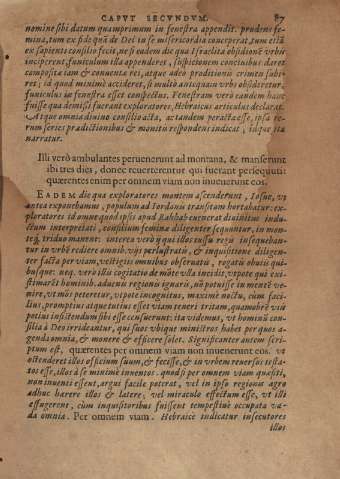 CAPVT SECVNDVM. 87
nomine sibi datum quamprimum in fenestra appendit. prudens femina, tum ex fide quã de Dei in se misericordia conceperat, tum etiã
ex sapienti consilio fecit, ne si eadem die qua Israelita obsidione vrbẽ
inciperent, funiculum illa apponderet, suspicionem conciuibus daret
composita iam & conuenta res, atque adeo proditionis crimen subiret;
id quod minimè accideret, si multo antequam vrbs obsideretur,
funiculus in fenestra esset conspectus. Fenestram verò eandem hanc
fuisse qua demissi fuerant exploratores, Hebraicus articulus declarat.
Atque omnia diuino consilio acta, ac tandem peracta esse, ipsa rerum
series prædictionibus & monitis respondens indicat, itaque ita
narratur.
Illi verò ambulantes peruenerunt ad montana, & manserunt
ibi tres dies, donec reuerterentur qui fuerant persequuti:
quærentes enim per omnem viam non inuenerunt eos.
EADEM die qua exploratores montem ascenderunt, Iosue, vt
antea exponebamus, populum ad Iordanis transitum hortabatur: exploratores
id omne quod ipsis apud Rahhab euenerat diuinitus inductum
interpretati, consilium feminæ diligenter sequuntur, in monteq́;
triduo manent: interea verò ij qui illos iussu regis insequebantur
in vrbẽ rediere omnib. vijs perlustratis, & inquisitione diligenter
facta per viam, vestigiis omnibus obseruatis, rogatis obuiis quibusque:
neq. verò illis cogitatio de mõte vlla incidit, vtpote qui existimarẽt
hominib. aduenis regionis ignaris, nõ potuisse in mentẽ venire,
vt mõs peteretur, vtpote incognitus, maximè noctu, cùm facilius,
promptius atque tutius esset viam teneri tritam, quamobrẽ viã
potius insistendum sibi esse censuerunt: ita videmus, vt hominũ consilia
à Deo irrideantur, qui suos vbique ministros habet per quos agenda
omnia, & monere & efficere solet. Significanter autem scriptum
est, quærentes per omnem viam non inuenerunt eos. vt
ostenderet illos officium suum, & fecisse, & in vrbem reuersos testatos
esse, illos à se minimè inuentos. quod si per omnem viam quæsiti,
non inuenti essent, argui facilè poterat, vel in ipso regionis agro
adhuc hærere illos & latere, vel miraculo effectum esse, vt illi
effugerent, cùm inquisitoribus fuissent tempestiuè occupata vada
omnia. Per omnem viam. Hebraicè indicatur insecutores
illos